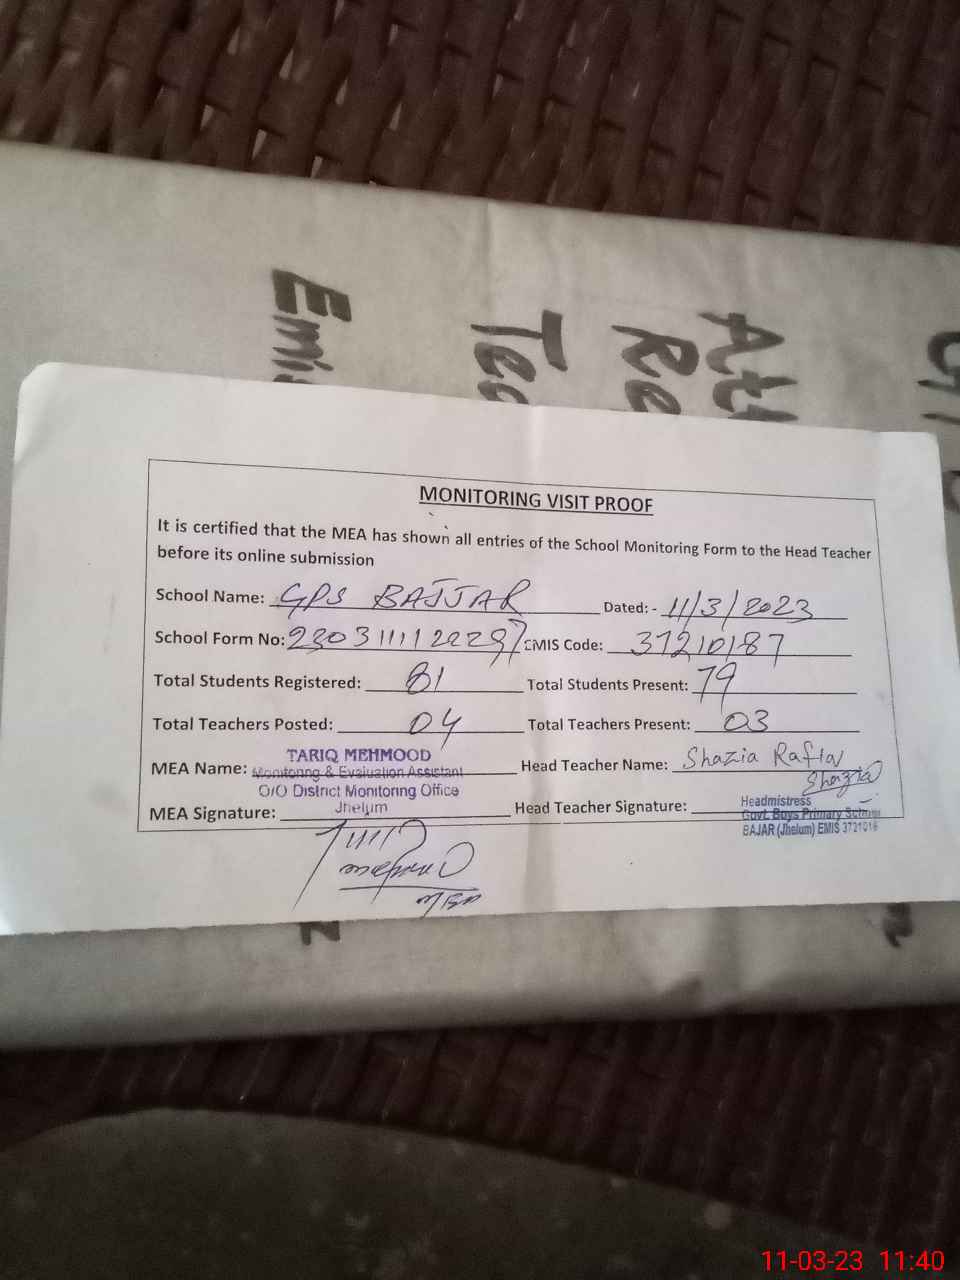 Emis
Tea
Re
Att
MONITORING VISIT PROOF
It is certified that the MEA has shown all entries of the School Monitoring Form to the Head Teacher
before its online submission
School Name: GPS BAJJAR Dated: - 11/3/2023
School Form No: EMIS Code: 37210187
Total Students Registered: 81 Total Students Present: 79
Total Teachers Posted: 04 Total Teachers Present: 03
MEA Name: TARIQ MEHMOOD
Monitoring & Evaluation Assistant
O/O District Monitoring Office
Jhelum
Head Teacher Name: Shazia
MEA Signature: Head Teacher Signature: Shazia
Headmistress
Govt. Boys Primary School
BAJAR (Jhelum) EMIS
MEA
11-03-23 11:40